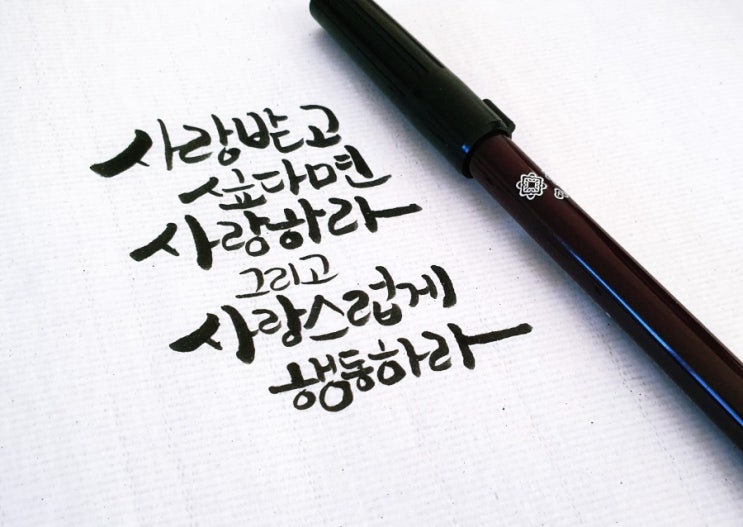 사랑받고
싶다면
사랑하라
그리고
사랑스럽게
행동하라